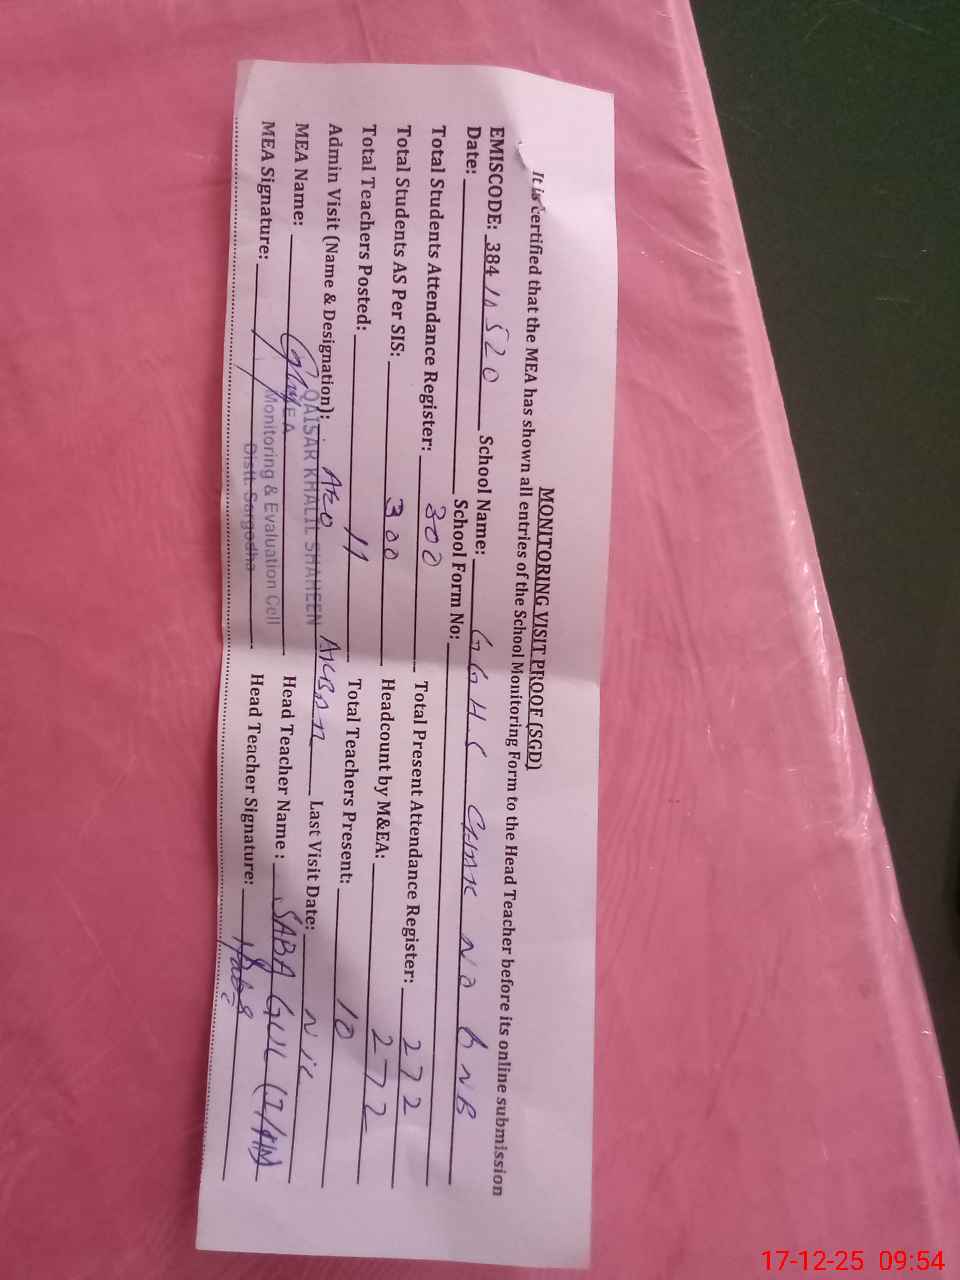 MONITORING VISIT PROOF (SGD)
It is certified that the MEA has shown all entries of the School Monitoring Form to the Head Teacher before its online submission
EMISCODE: 384 School Name: GGHS CHAK NO NB
Date: School Form No:
Total Students Attendance Register: 300 Total Present Attendance Register: 272
Total Students AS Per SIS: 300 Headcount by M&EA: 272
Total Teachers Posted: 11 Total Teachers Present: 10
Admin Visit (Name & Designation): AEO AKBAR Last Visit Date: Nil
MEA Name: Head Teacher Name : SABA GUL
MEA Signature: Head Teacher Signature:
QAISAR KHALIL SHAHEEN
MEA
Monitoring & Evaluation Cell
Distt. Sargodha
17-12-25 09:54